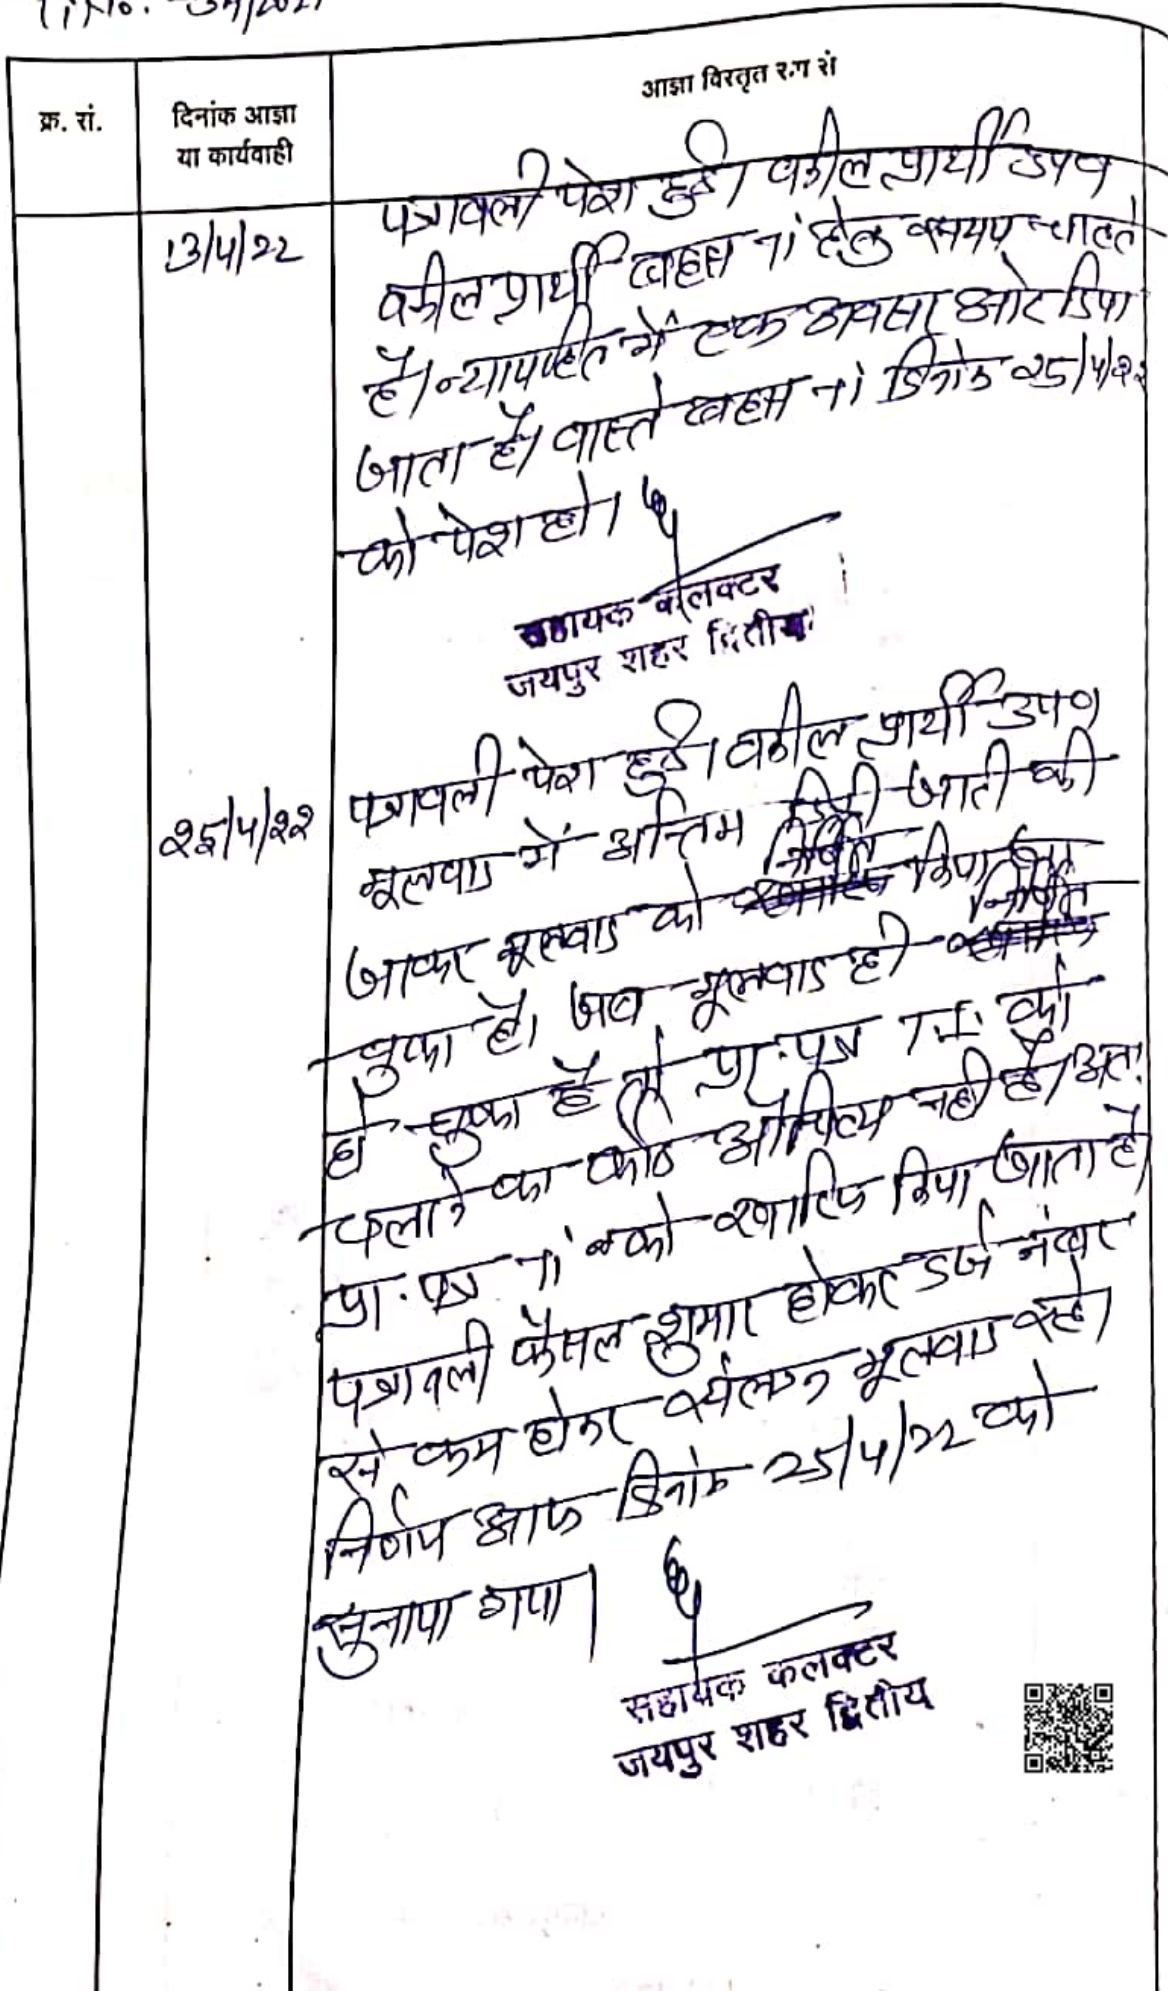 क्र. सं.
दिनांक आज्ञा
या कार्यवाही
आज्ञा विस्तृत रूप से
13/4/22
पत्रावली पेश हुई। वकील प्रार्थी उप०
वकील प्रार्थी बहस TI हेतु समय चाहते
है। न्यायहित में एक अवसर ओर दिया
जाता है। वास्ते बहस TI दिनांक 25/4/22
को पेश हो।
सहायक कलक्टर
जयपुर शहर द्वितीय
25/4/22
पत्रावली पेश हुई। वकील प्रार्थी उप०
मूलवाद में अन्तिम डिक्री जारी की
जाकर मूलवाद को निर्णित किया जा
चुका है। जब मूलवाद ही निर्णित
हो चुका है तो प्रा.पत्र T.I. को
चलाने का कोई औचित्य नही है। अतः
प्रा.पत्र TI को खारिज किया जाता है।
पत्रावली फैसल शुमार होकर दर्ज नंबर
से कम होकर संलग्न मूलवाद रहे।
निर्णय आज दिनांक 25/4/22 को
सुनाया गया।
सहायक कलक्टर
जयपुर शहर द्वितीय